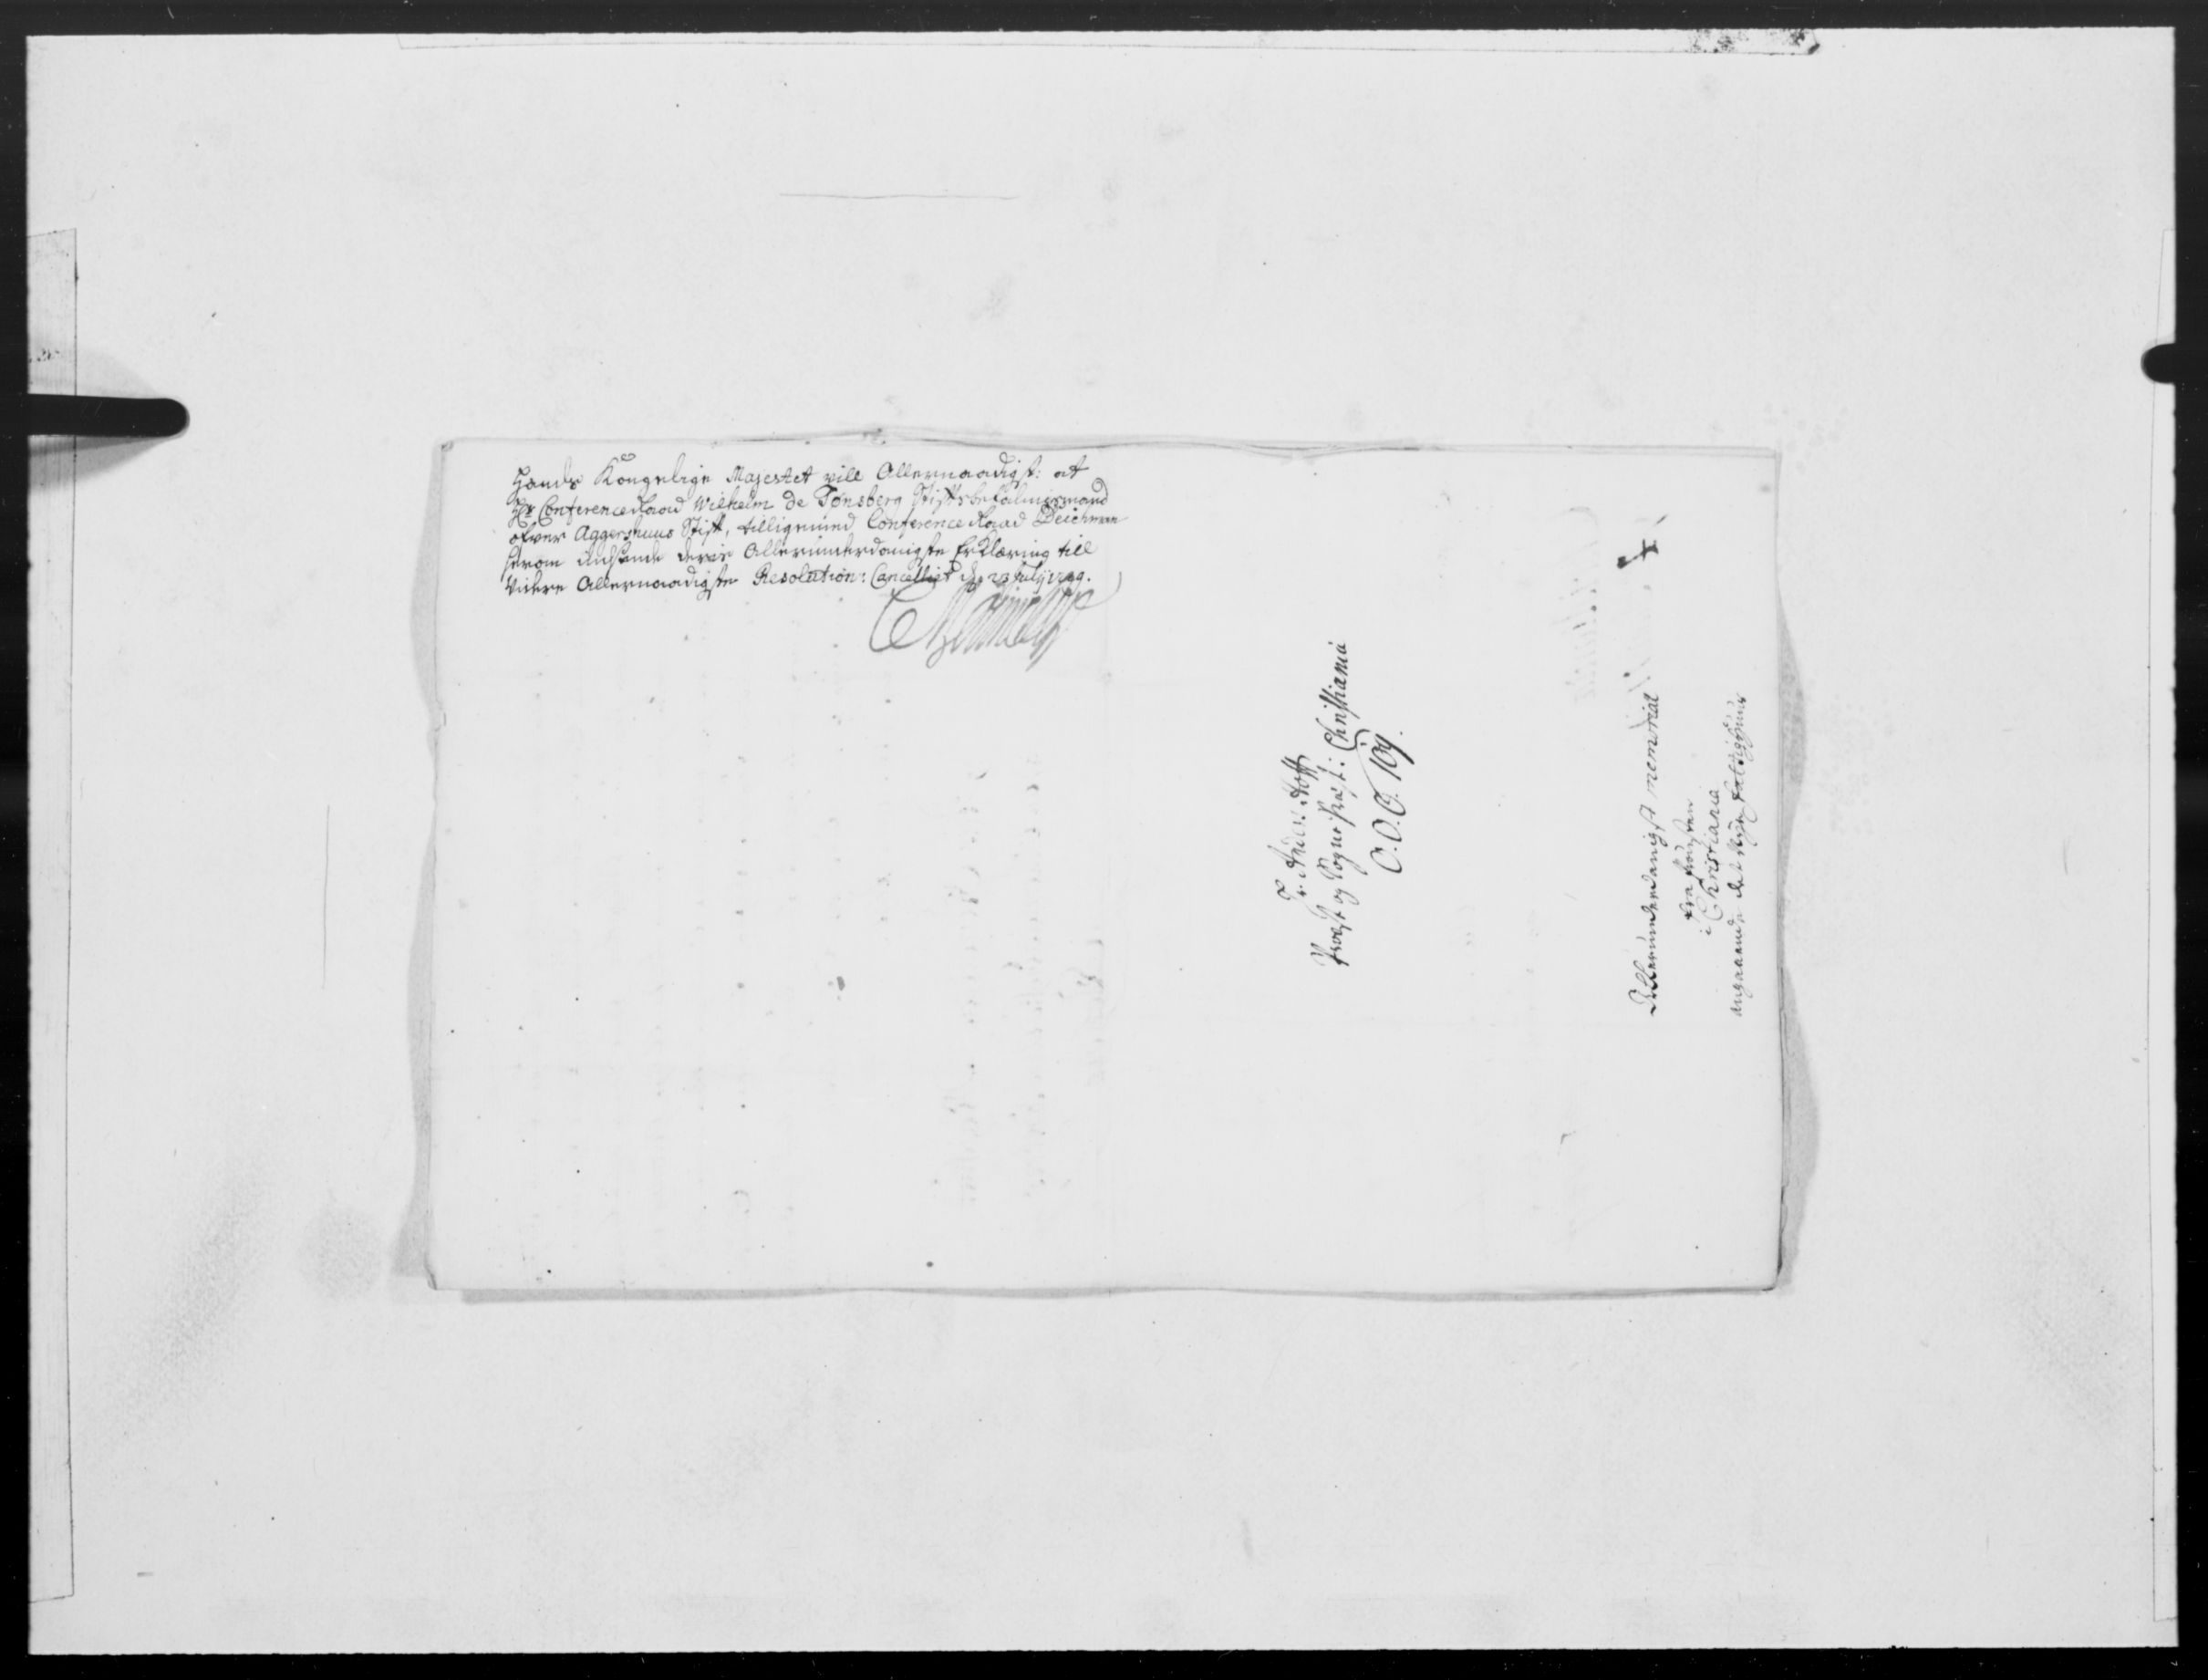 Hands Kongelige Majestet vill Allernaadigst: at
Hr ConferenceRaad Wilhelm de Tønsberg Stiftsbefalingsmand
ofver Aggershuus Stift, tilligemed Conference Raad Deichman
herom indsende deris Allerunderdanigste Erklæring till
Videre Allernaadigste Resolution: Cancelliet d. 23 July
Provst og Sogne Præst: Christiania
O. O. O. 109.
Allerunderdanigst memorial
fra Provsten
i Christiania
angaaende det Nye Fattighuus